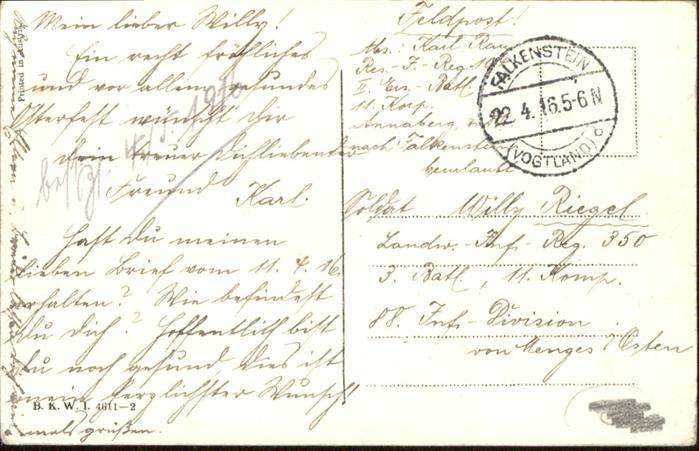 Mein lieber Willy!
Ein recht fröhliches
und vor allem gesundes
Osterfest wünscht dir
dein treuer dichliebender
Freund Karl.
Hast du meinen
lieben Brief vom 11. 4. 16.
erhalten? Wie befindest
du dich? Hoffentlich bist
du noch gesund, dies ist
mein herzlichster Wunsch!
mals grüßen.
Printed in
B. K. W. I. 4611-2
Feldpost!
Abs.: Karl
Res.-I.-Reg.
II. Ers.-Batl.
11. Korp.
Annaberg,
nach Falkenstein
beurlaubt
FALKENSTEIN
22. 4. 16. 5-6 N
(VOGTLAND) c
Soldat Willy Riegel
Landw.-Inf.-Reg. 350
3. Batl., 11. Komp.
88. Inf.-Division
von Menges Osten